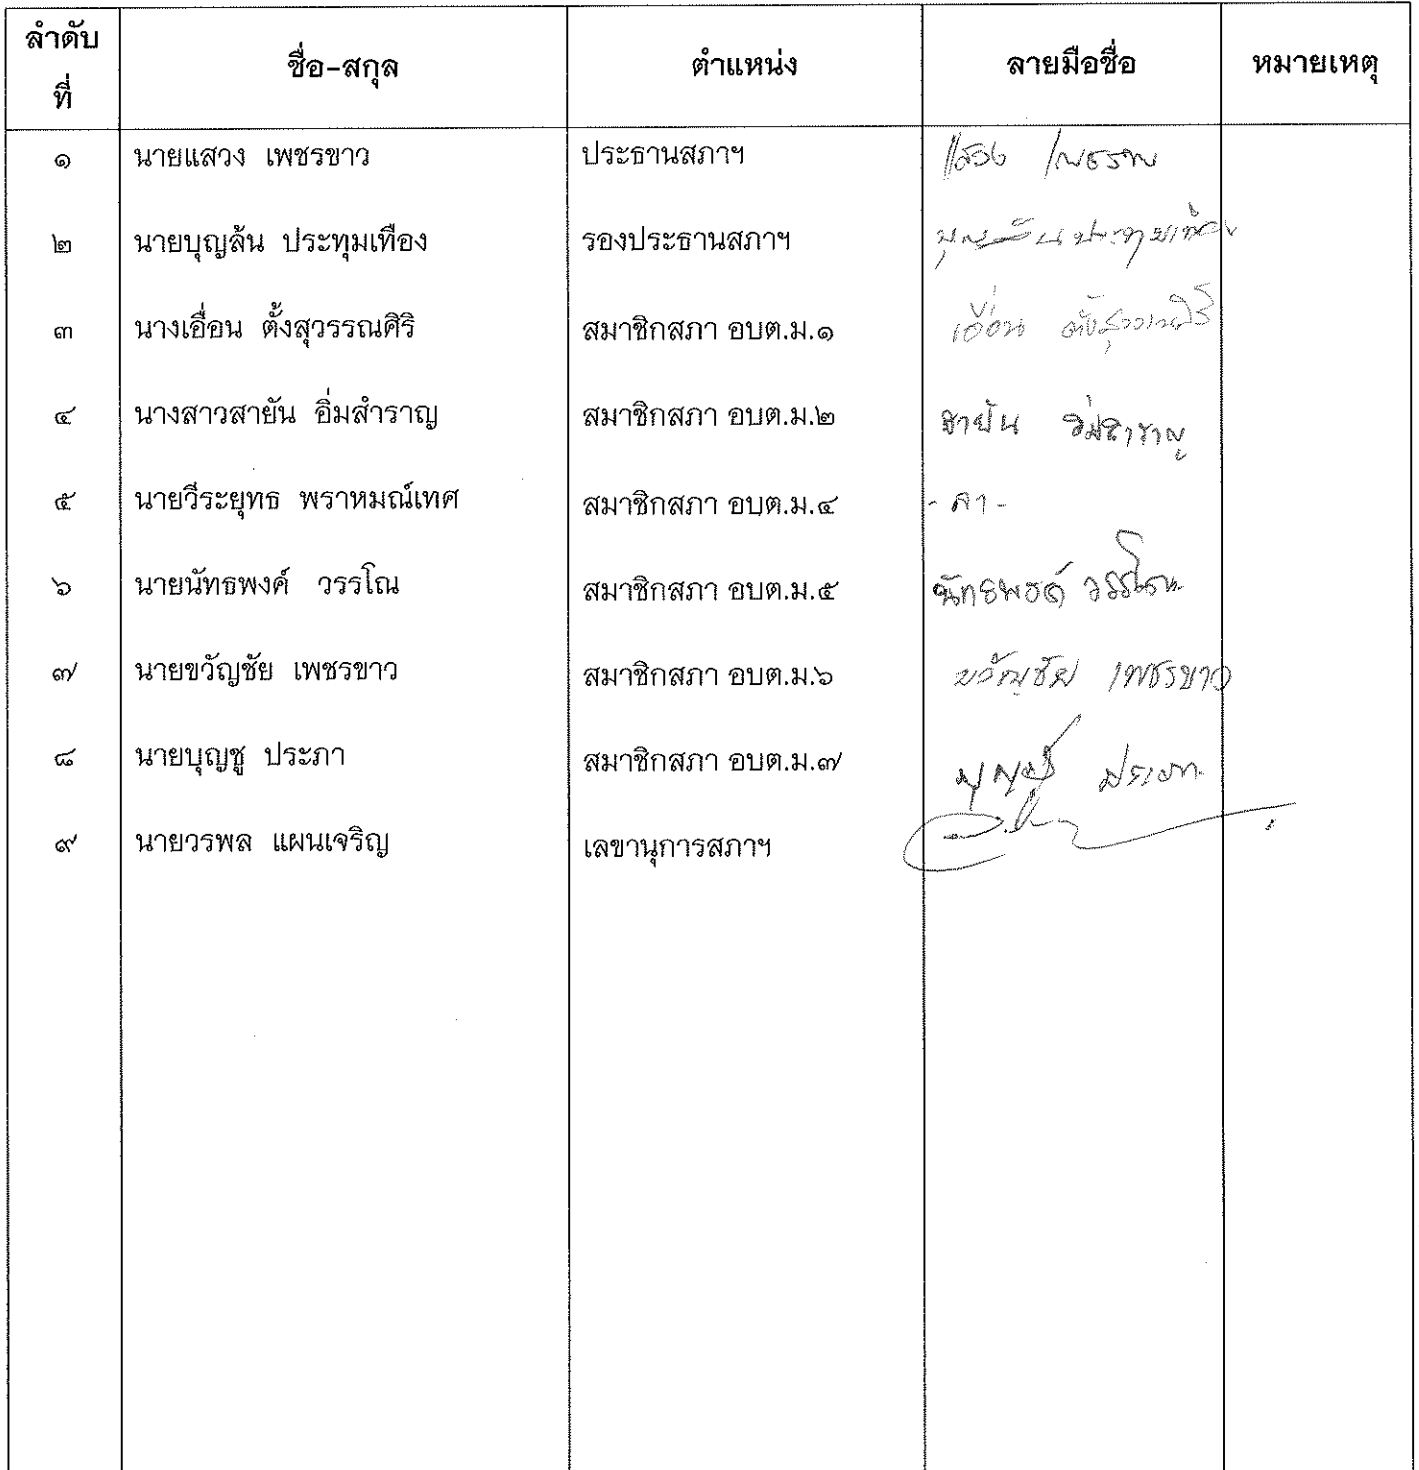 ลำดับที่ ชื่อ-สกุล ตำแหน่ง ลายมือชื่อ หมายเหตุ
๑ นายแสวง เพชรขาว ประธานสภาฯ แสวง เพชรขาว
๒ นายบุญล้น ประทุมเทือง รองประธานสภาฯ บุญล้น ประทุมเทือง
๓ นางเอื่อน ตั้งสุวรรณศิริ สมาชิกสภา อบต.ม.๑ เอื่อน ตั้งสุวรรณศิริ
๔ นางสาวสายัน อิ่มสำราญ สมาชิกสภา อบต.ม.๒ สายัน อิ่มสำราญ
๕ นายวีระยุทธ พราหมณ์เทศ สมาชิกสภา อบต.ม.๔ - ลา -
๖ นายนัทธพงค์ วรรโณ สมาชิกสภา อบต.ม.๕ นัทธพงค์ วรรโณ
๗ นายขวัญชัย เพชรขาว สมาชิกสภา อบต.ม.๖ ขวัญชัย เพชรขาว
๘ นายบุญชู ประภา สมาชิกสภา อบต.ม.๗ บุญชู ประภา
๙ นายวรพล แผนเจริญ เลขานุการสภาฯ